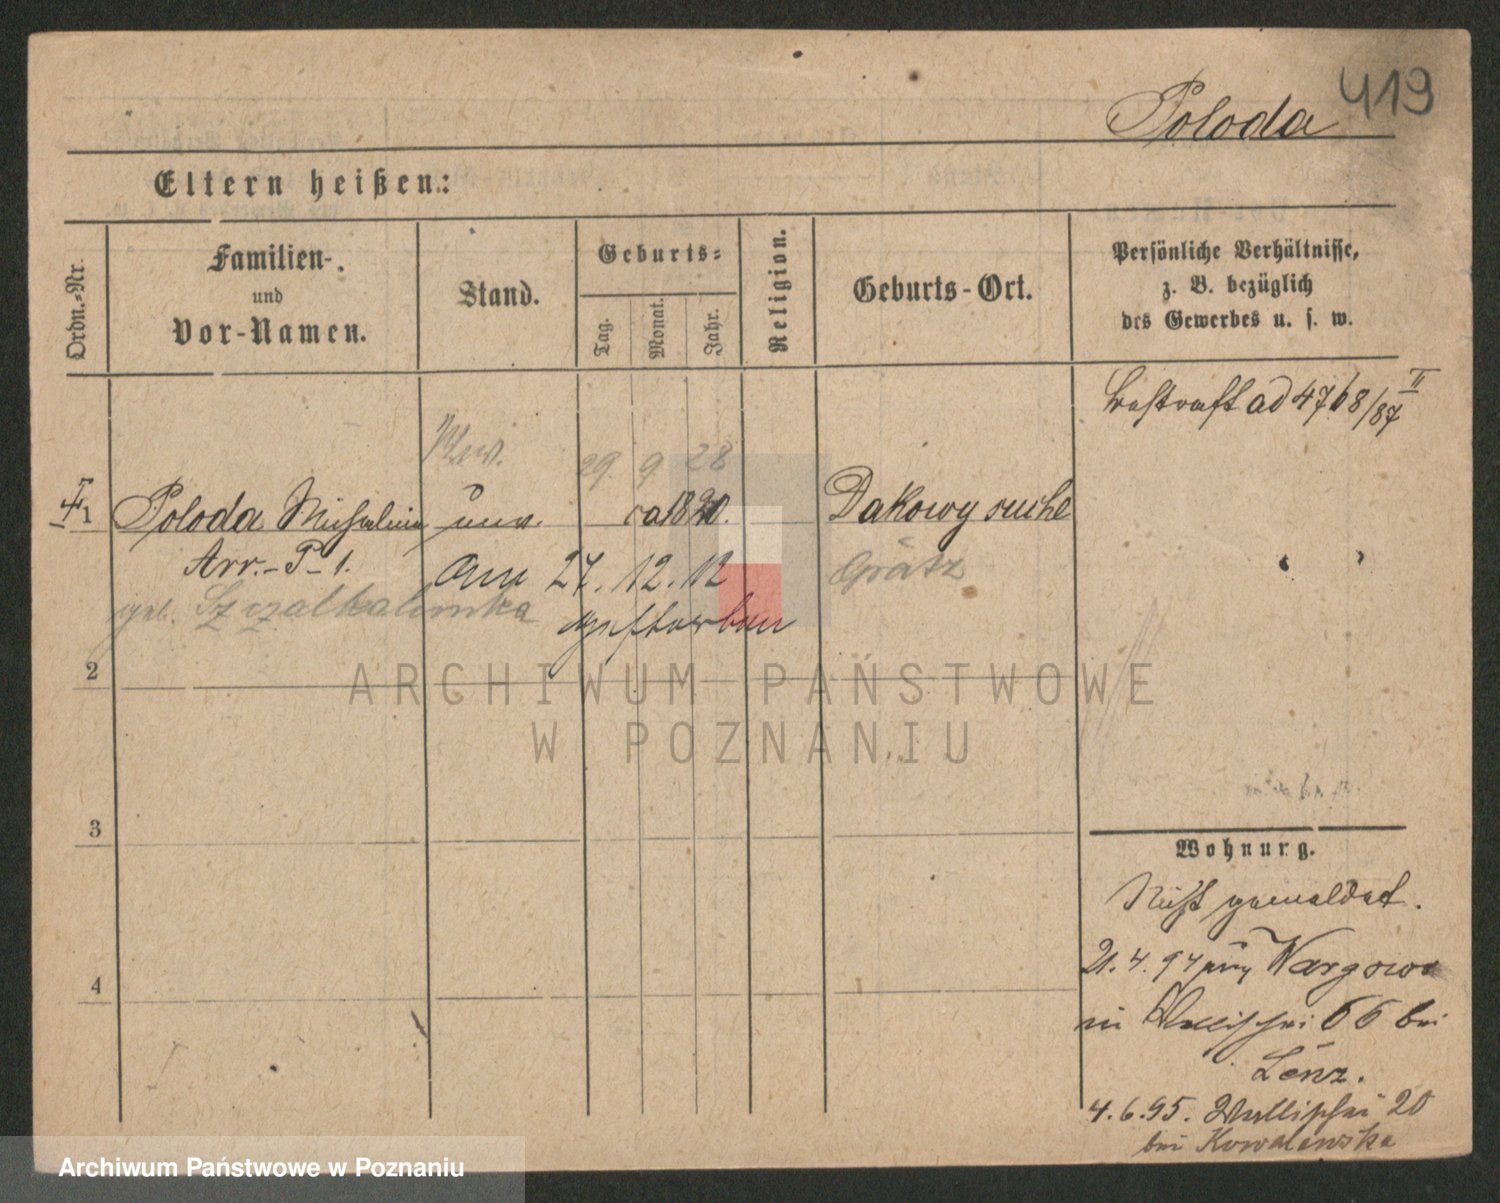 419
Poloda
Eltern heißen:
Ordn.=Nr.
Familien-
und
Vor-Namen.
Stand.
Geburts=
Tag.
Monat.
Jahr.
Religion.
Geburts-Ort.
Persönliche Verhältnisse,
z. B. bezüglich
des Gewerbes u. s. w.
bestraft ad 4768/87 II
29 9 28
1 Poloda Michalina unv. ca 1830. Dakowy suche
Arr.-P-1. am 27. 12. 12 Grätz
geb.
gestorben
2
3
4
Wohnung.
Nicht gemeldet.
21. 4. 94 Wargowo
in Wallischei 66 bei
Lenz.
4. 6. 95. Wallischei 20
bei Kowalewska
ARCHIWUM PAŃSTWOWE
W POZNANIU
Archiwum Państwowe w Poznaniu